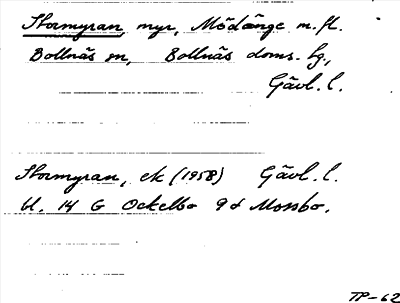 Stormyran, myr, Mödänge m.fl.
Bollnäs sn, Bollnäs doms. hg,
Gävl. l.
Stormyran, ek (1958) Gävl. l.
bl. 14 G Ockelbo 9d Mossbo.
TP-62